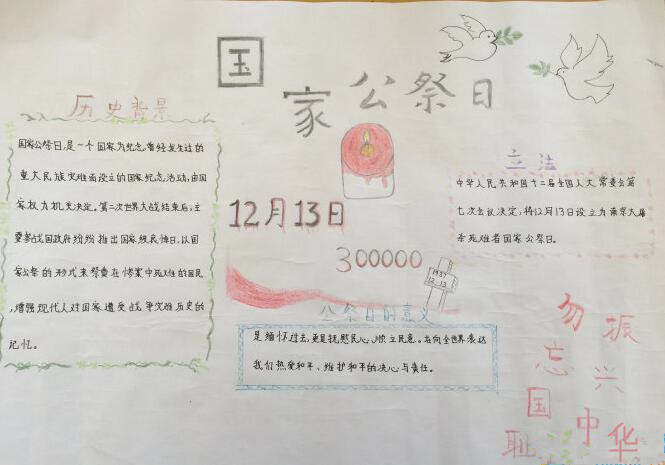 国家公祭日
历史背景
国家公祭日,是一个国家为纪念曾经发生过的
重大民族灾难而设立的国家纪念活动,由国
家权力机关决定。第二次世界大战结束后,主
要参战国政府纷纷推出国家级哀悼日,以国
家公祭的形式来祭奠在惨案中死难的国民
,增强现代人对国家遭受战争灾难历史的
记忆。
12月13日
300000
1937
12.13
立法
中华人民共和国十二届全国人大常委会第
七次会议决定,将12月13日设立为南京大屠
杀死难者国家公祭日。
公祭日的意义
是缅怀过去,更是抚慰民心、顺应民意。在向全世界表达
我们热爱和平、维护和平的决心与责任。
勿忘国耻
振兴中华